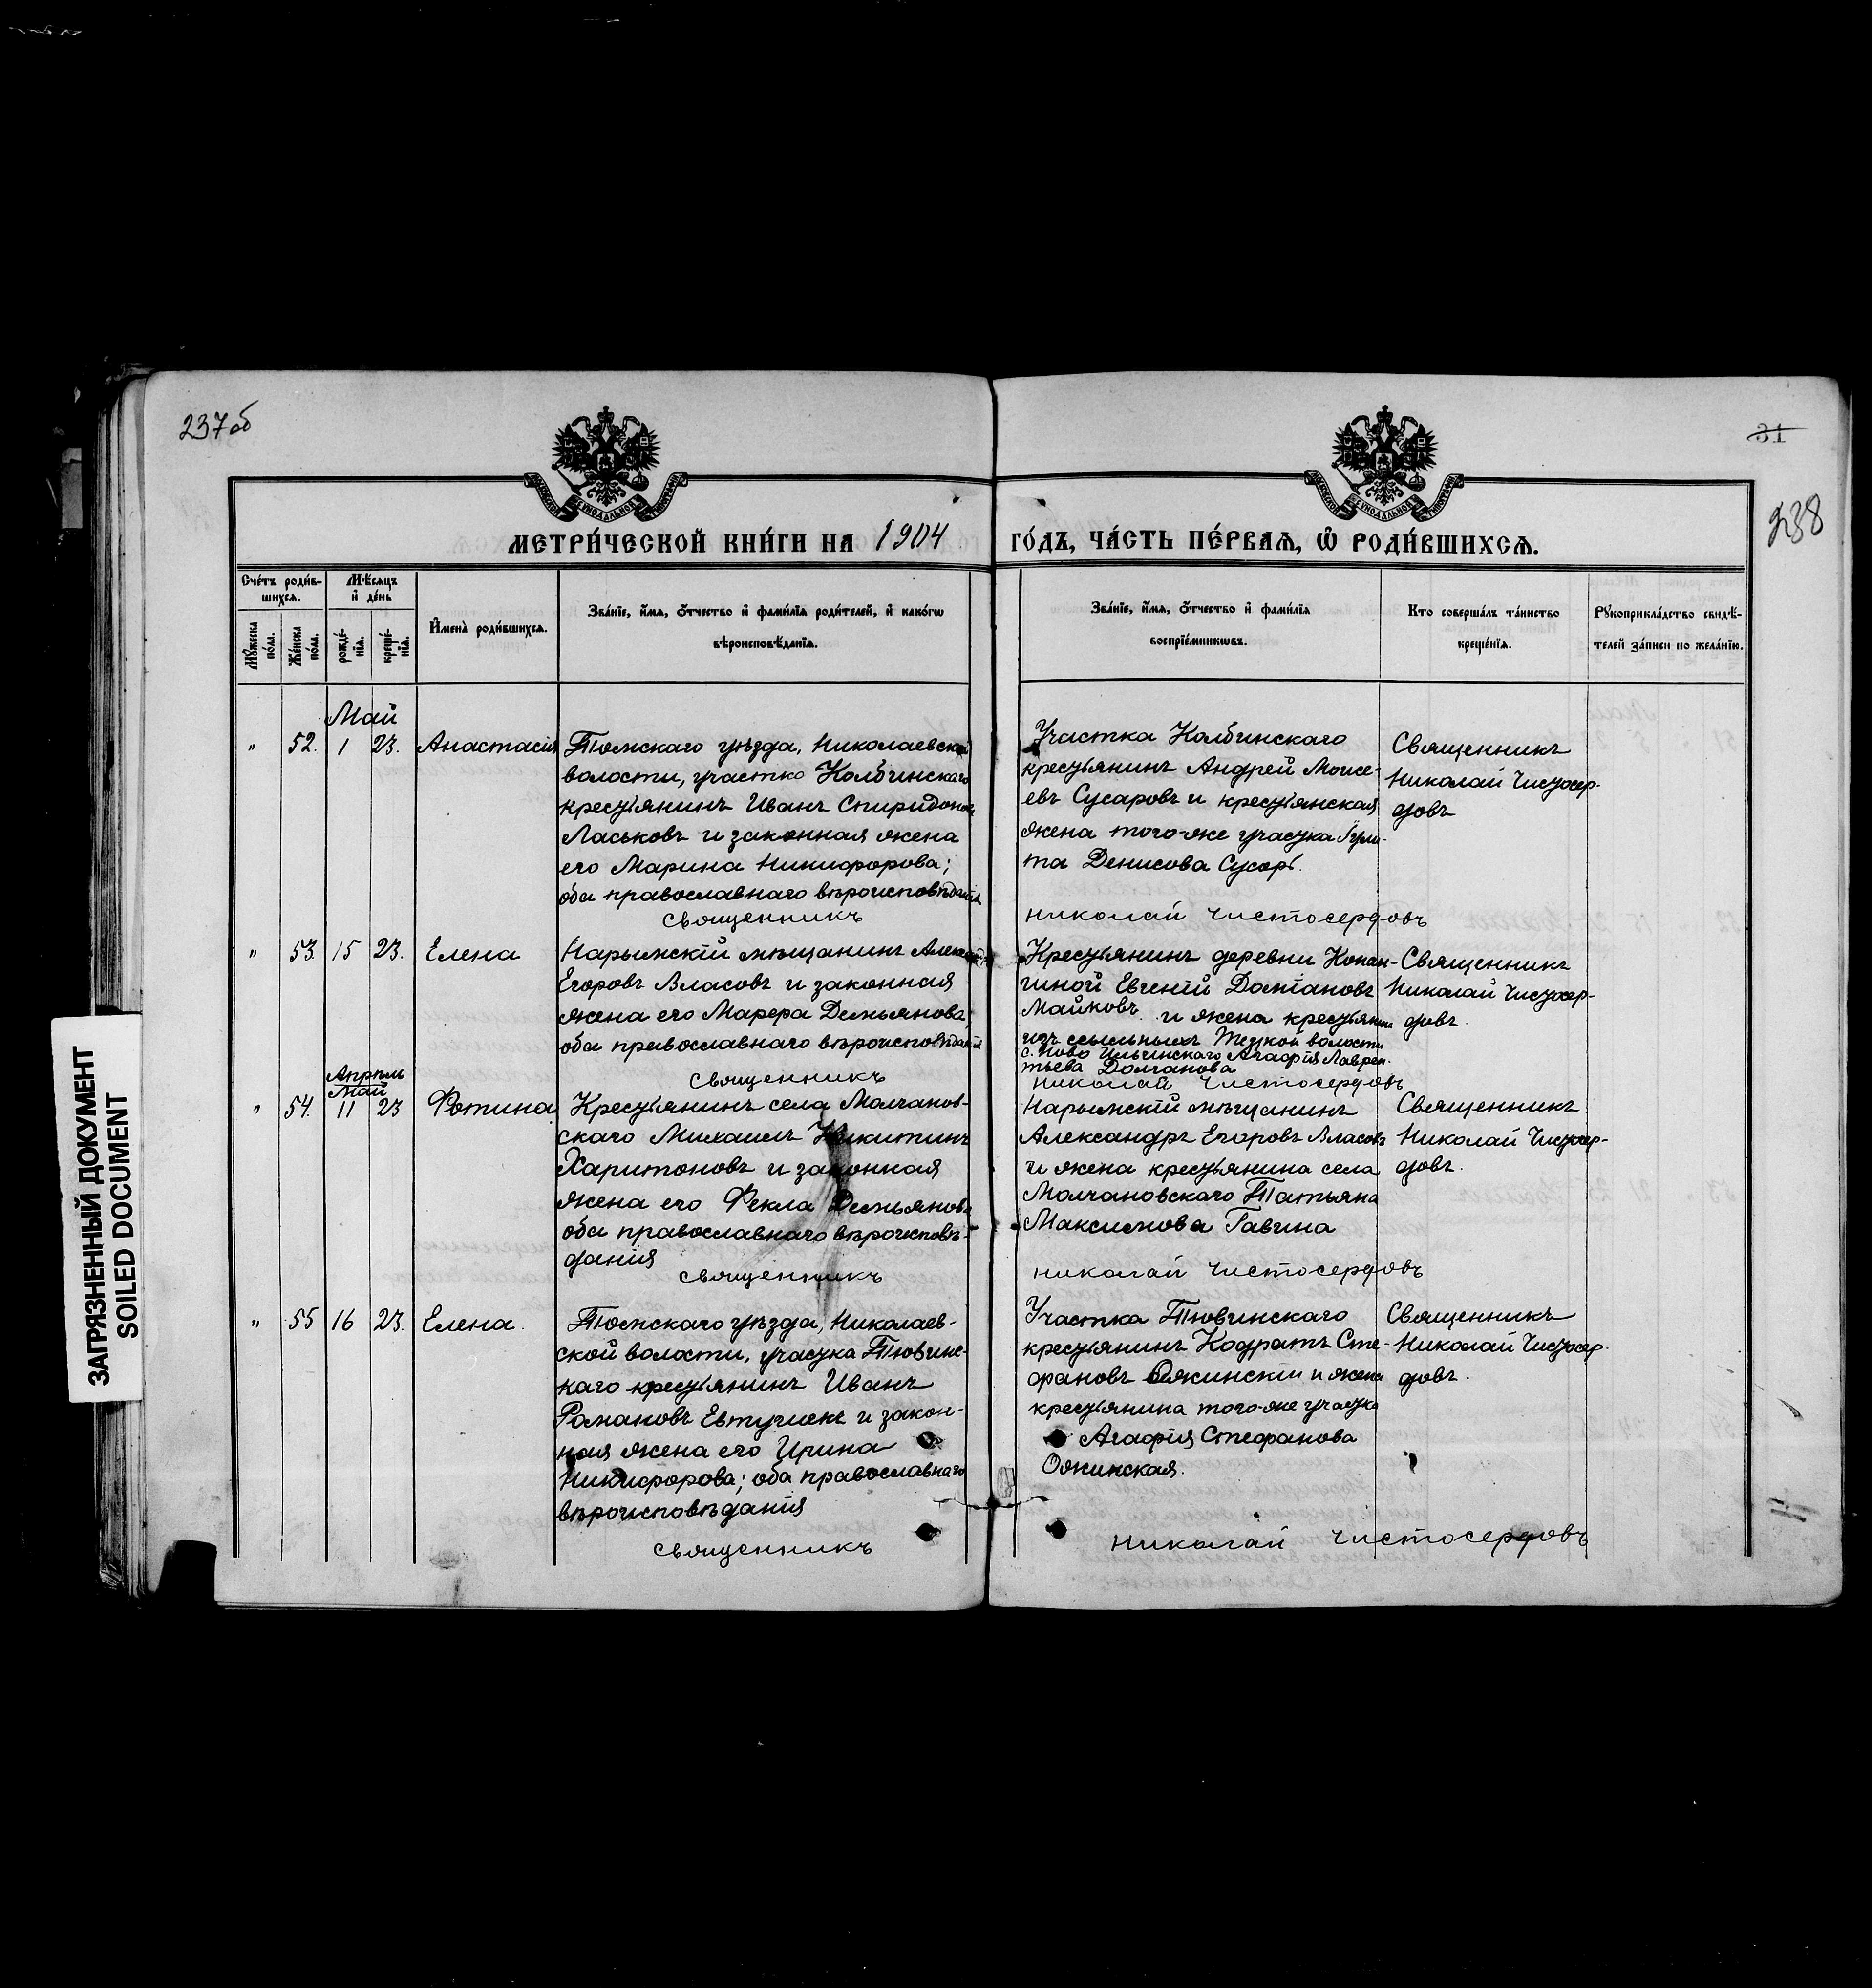 237об
31
238
МЕТРИ́ЧЕСКОЙ КНИ́ГИ НА 1904 ГО́ДЪ, ЧА́СТЬ ПЕ́РВАѦ, Ѽ РОДИ́ВШИХСѦ.
Сче́тъ роди́в-
шихсѧ.
Мꙋ́жеска по́ла.
Же́нска по́ла.
Мѣ́сѧцъ
и҆ де́нь
рожде́-
нїѧ.
креще́-
нїѧ.
И҆мена̀ роди́вшихсѧ.
Зва́нїе, и҆́мѧ, ѻ҆́тчество и҆ фами́лїѧ роди́телей, и҆ како́гѡ
вѣроисповѣ́данїѧ.
Зва́нїе, и҆́мѧ, ѻ҆́тчество и҆ фами́лїѧ
воспрїе́мникѡвъ.
Кто соверша́лъ та́инство
креще́нїѧ.
Рꙋкоприкла́дство свидѣ́-
телей за́писи по жела́нїю.
Май
" 52. 1 23. Анастасія
Томскаго уѣзда, Николаевской
волости, участка Колбинскаго
крестьянинъ Иванъ Спиридоновъ
Ласьковъ и законная жена
его Марина Никифорова;
оба православнаго вѣроисповѣданія
Участка Колбинскаго
крестьянинъ Андрей Моисе-
евъ Сусаровъ и крестьянская
жена того-же участка
та Денисова
Священникъ
Николай Чистосер-
довъ
священникъ николай чистосердовъ
" 53. 15 23. Елена
Нарымскій мѣщанинъ
Егоровъ Власовъ и законная
жена его Марфа Демьянова,
оба православнаго вѣроисповѣданія
Крестьянинъ деревни
гиной Евгеній
Майковъ и жена крестьянина
изъ ссыльныхъ волости
с. Ново Ильинскаго Агафія Лаврен-
тьева Долганова
Священникъ
Николай Чистосер-
довъ.
священникъ николай чистосердовъ
Апрѣль
Май
" 54. 11 23 Фотина
Крестьянинъ села Молчанов-
скаго Михаилъ Никитинъ
Харитоновъ и законная
жена его Фекла Демьянова
оба православнаго вѣроисповѣ-
данія
Нарымскій мѣщанинъ
Александръ Егоровъ Власовъ
и жена крестьянина села
Молчановскаго Татьяна
Максимова Гавина
Священникъ
Николай Чистосер-
довъ.
священникъ николай чистосердовъ
" 55 16 23. Елена.
Томскаго уѣзда, Николаев-
ской волости, участка Тювинс-
каго крестьянинъ Иванъ
Романовъ Евтушенъ и закон-
ная жена его Ирина
Никифорова; оба православнаго
вѣроисповѣданія
Участка Тювинскаго
крестьянинъ Кодратъ Сте-
фановъ Ожинскій и жена
крестьянина того-же участка
Агафія Стефанова
Ожинская.
Священникъ
Николай Чистосер-
довъ.
священникъ николай чистосердовъ
ЗАГРЯЗНЕННЫЙ ДОКУМЕНТ
SOILED DOCUMENT